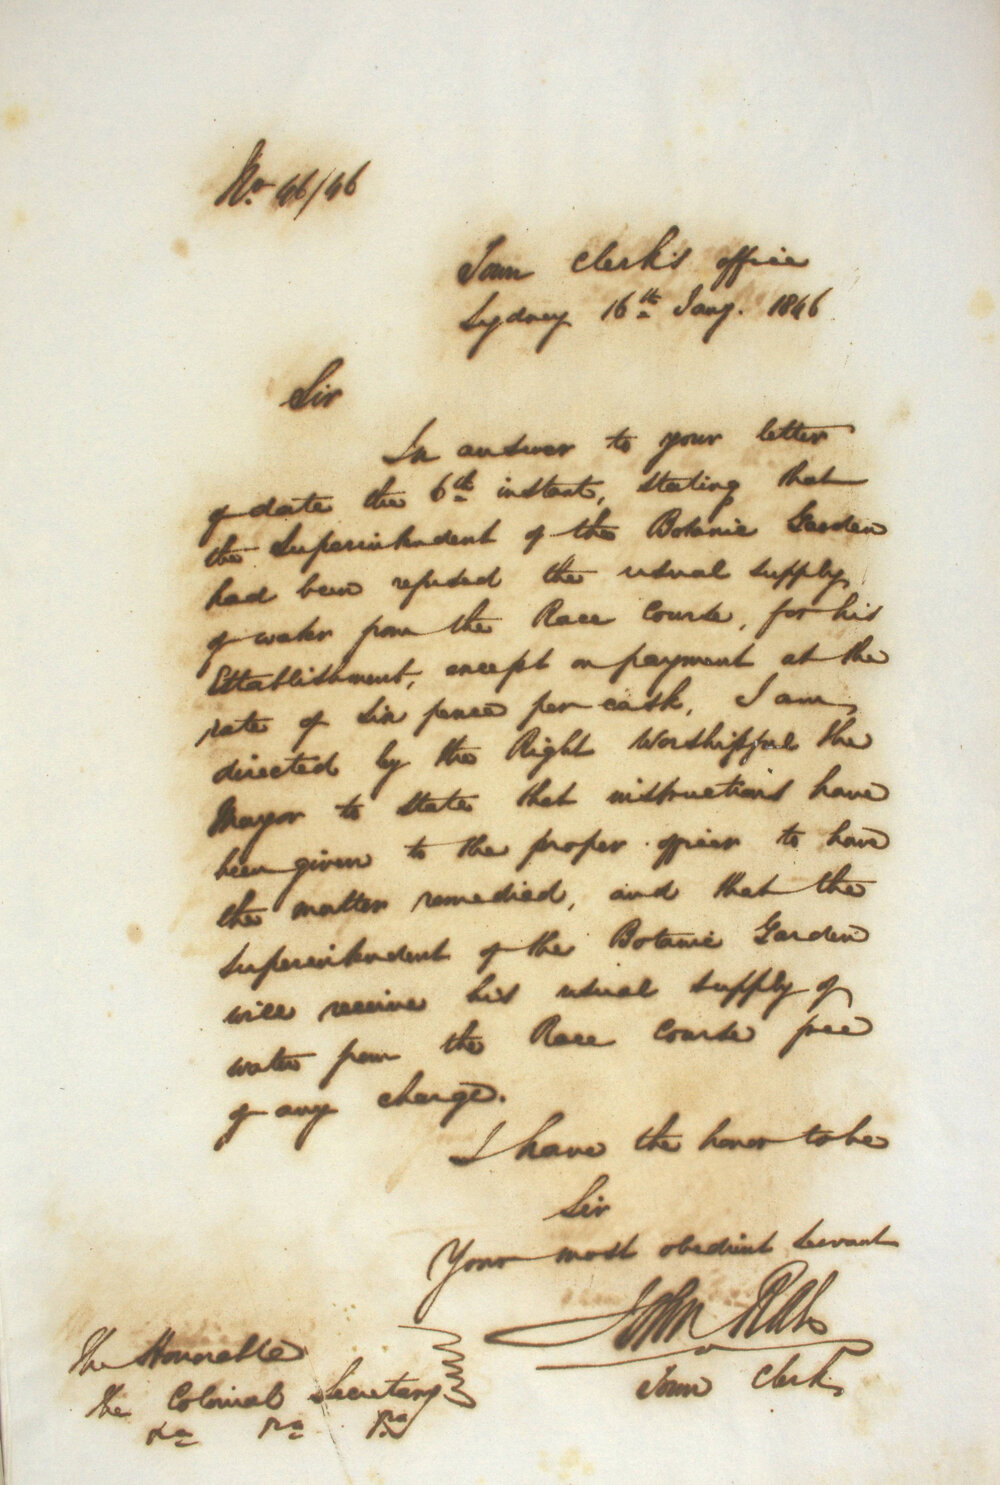 No. 46/46
Town Clerk's office
Sydney 16th Jany. 1846
Sir
In answer to your letter
of date the 6th instant, stating that
the Superintendent of the Botanic Garden
had been refused the usual supply
of water from the Race Course, for his
Establishment, except on payment at the
rate of Six pence per cask, I am
directed by the Right Worshipful the
Mayor to state that instructions have
been given to the proper officer to have
the matter remedied, and that the
Superintendent of the Botanic Garden
will receive his usual supply of
water from the Race Course free
of any charge.
I have the honor to be
Sir
Your most obedient servant
John
Town Clerk
The Honorable
The Colonial Secretary